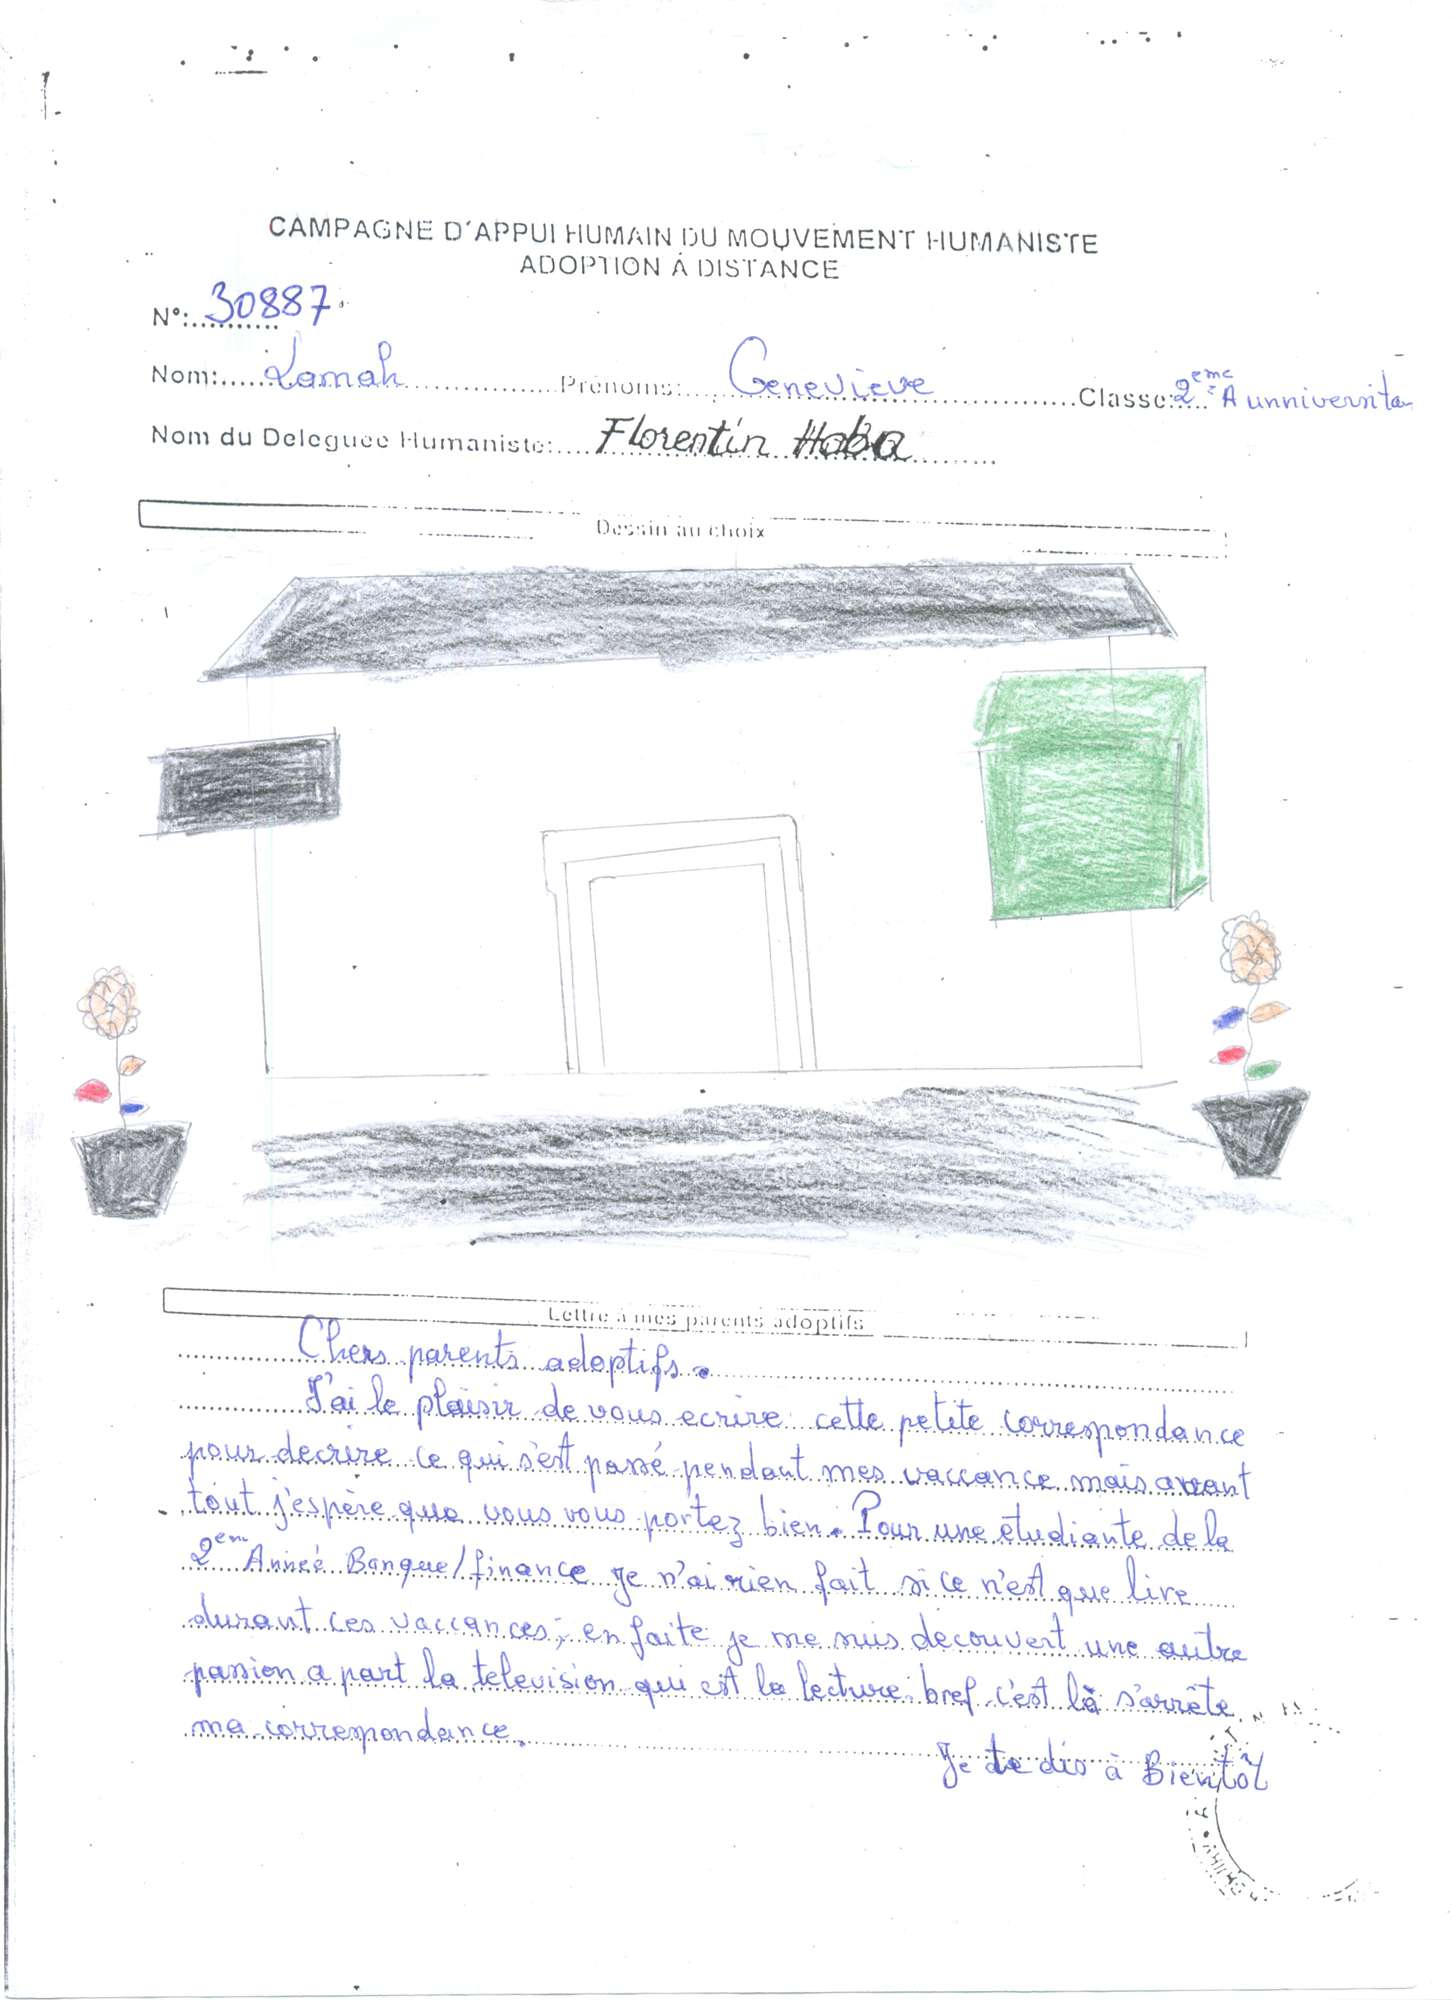 CAMPAGNE D'APPUI HUMAIN DU MOUVEMENT HUMANISTE
ADOPTION À DISTANCE
N°:..........30887
Nom:.....Lamah..............Prénoms:....Genevieve..............Classe:2eme A unniversita
Nom du Deleguee Humaniste:....Florentin Haba..........
Dessin au choix
Lettre à mes parents adoptifs
Chers parents adoptifs.
J'ai le plaisir de vous ecrire cette petite correspondance
pour decrire ce qui s'est passé pendant mes vaccance mais avant
tout j'espère que vous vous portez bien. Pour une étudiante de la
2em Anneé Banque/finance je n'ai rien fait si ce n'est que lire
durant ces vaccances; en faite je me suis decouvert une autre
passion a part la television qui est la lecture. bref c'est là s'arrête
ma correspondance.
Je te dis à Bientôt